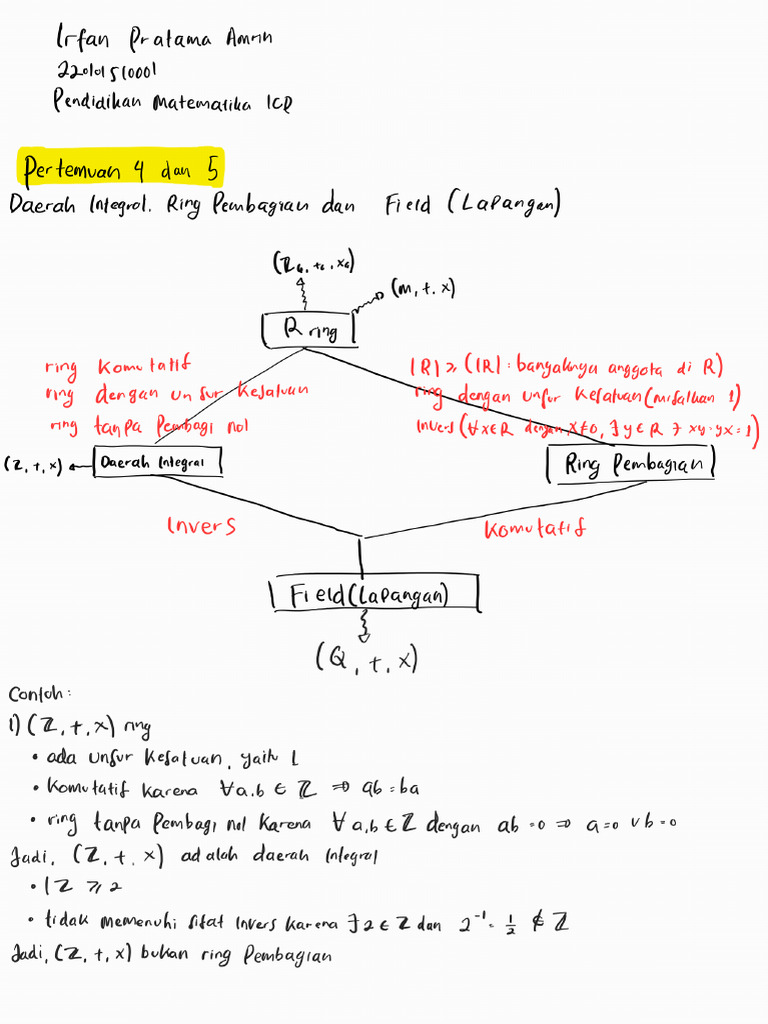 Irfan Pratama Amrin
220101510001
Pendidikan Matematika ICP
Pertemuan 4 dan 5
Daerah Integral. Ring Pembagian dan Field (Lapangan)
(Z₆, +₆, ×₆)
(M, +, ×)
Ring
ring Komutatif
ring dengan unsur Kesatuan
ring tanpa Pembagi nol
|R| ≥ (|R| : banyaknya anggota di R)
ring dengan unsur Kesatuan (misalkan 1)
Invers (∀x∈R dengan x≠0, ∃y∈R ∋ xy=yx=1)
(Z, +, ×)
Daerah Integral
Ring Pembagian
Invers
Komutatif
Field (Lapangan)
(Q, +, ×)
Contoh:
1) (Z, +, ×) ring
• ada unsur Kesatuan, yaitu 1
• Komutatif Karena ∀a,b ∈ Z ⇒ ab=ba
• ring tanpa Pembagi nol Karena ∀a,b∈Z dengan ab=0 ⇒ a=0 ∨ b=0
Jadi, (Z, +, ×) adalah daerah Integral
• |Z ≥ 2
• tidak memenuhi sifat Invers Karena ∃2∈Z dan 2⁻¹=½ ∉ Z
Jadi, (Z, +, ×) bukan ring Pembagian